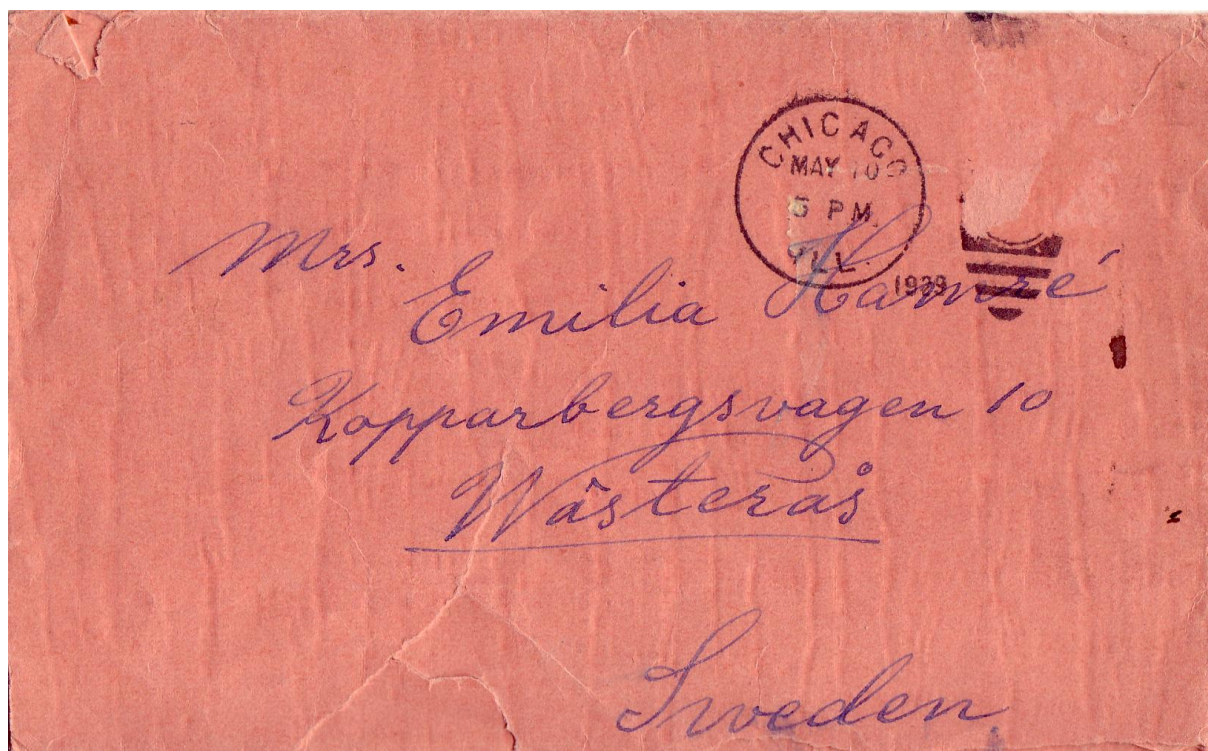 CHICAGO
MAY 10
5 PM
ILL.
Mrs.
Emilia Hamré
Kopparbergsvagen 10
Wästerås
Sweden